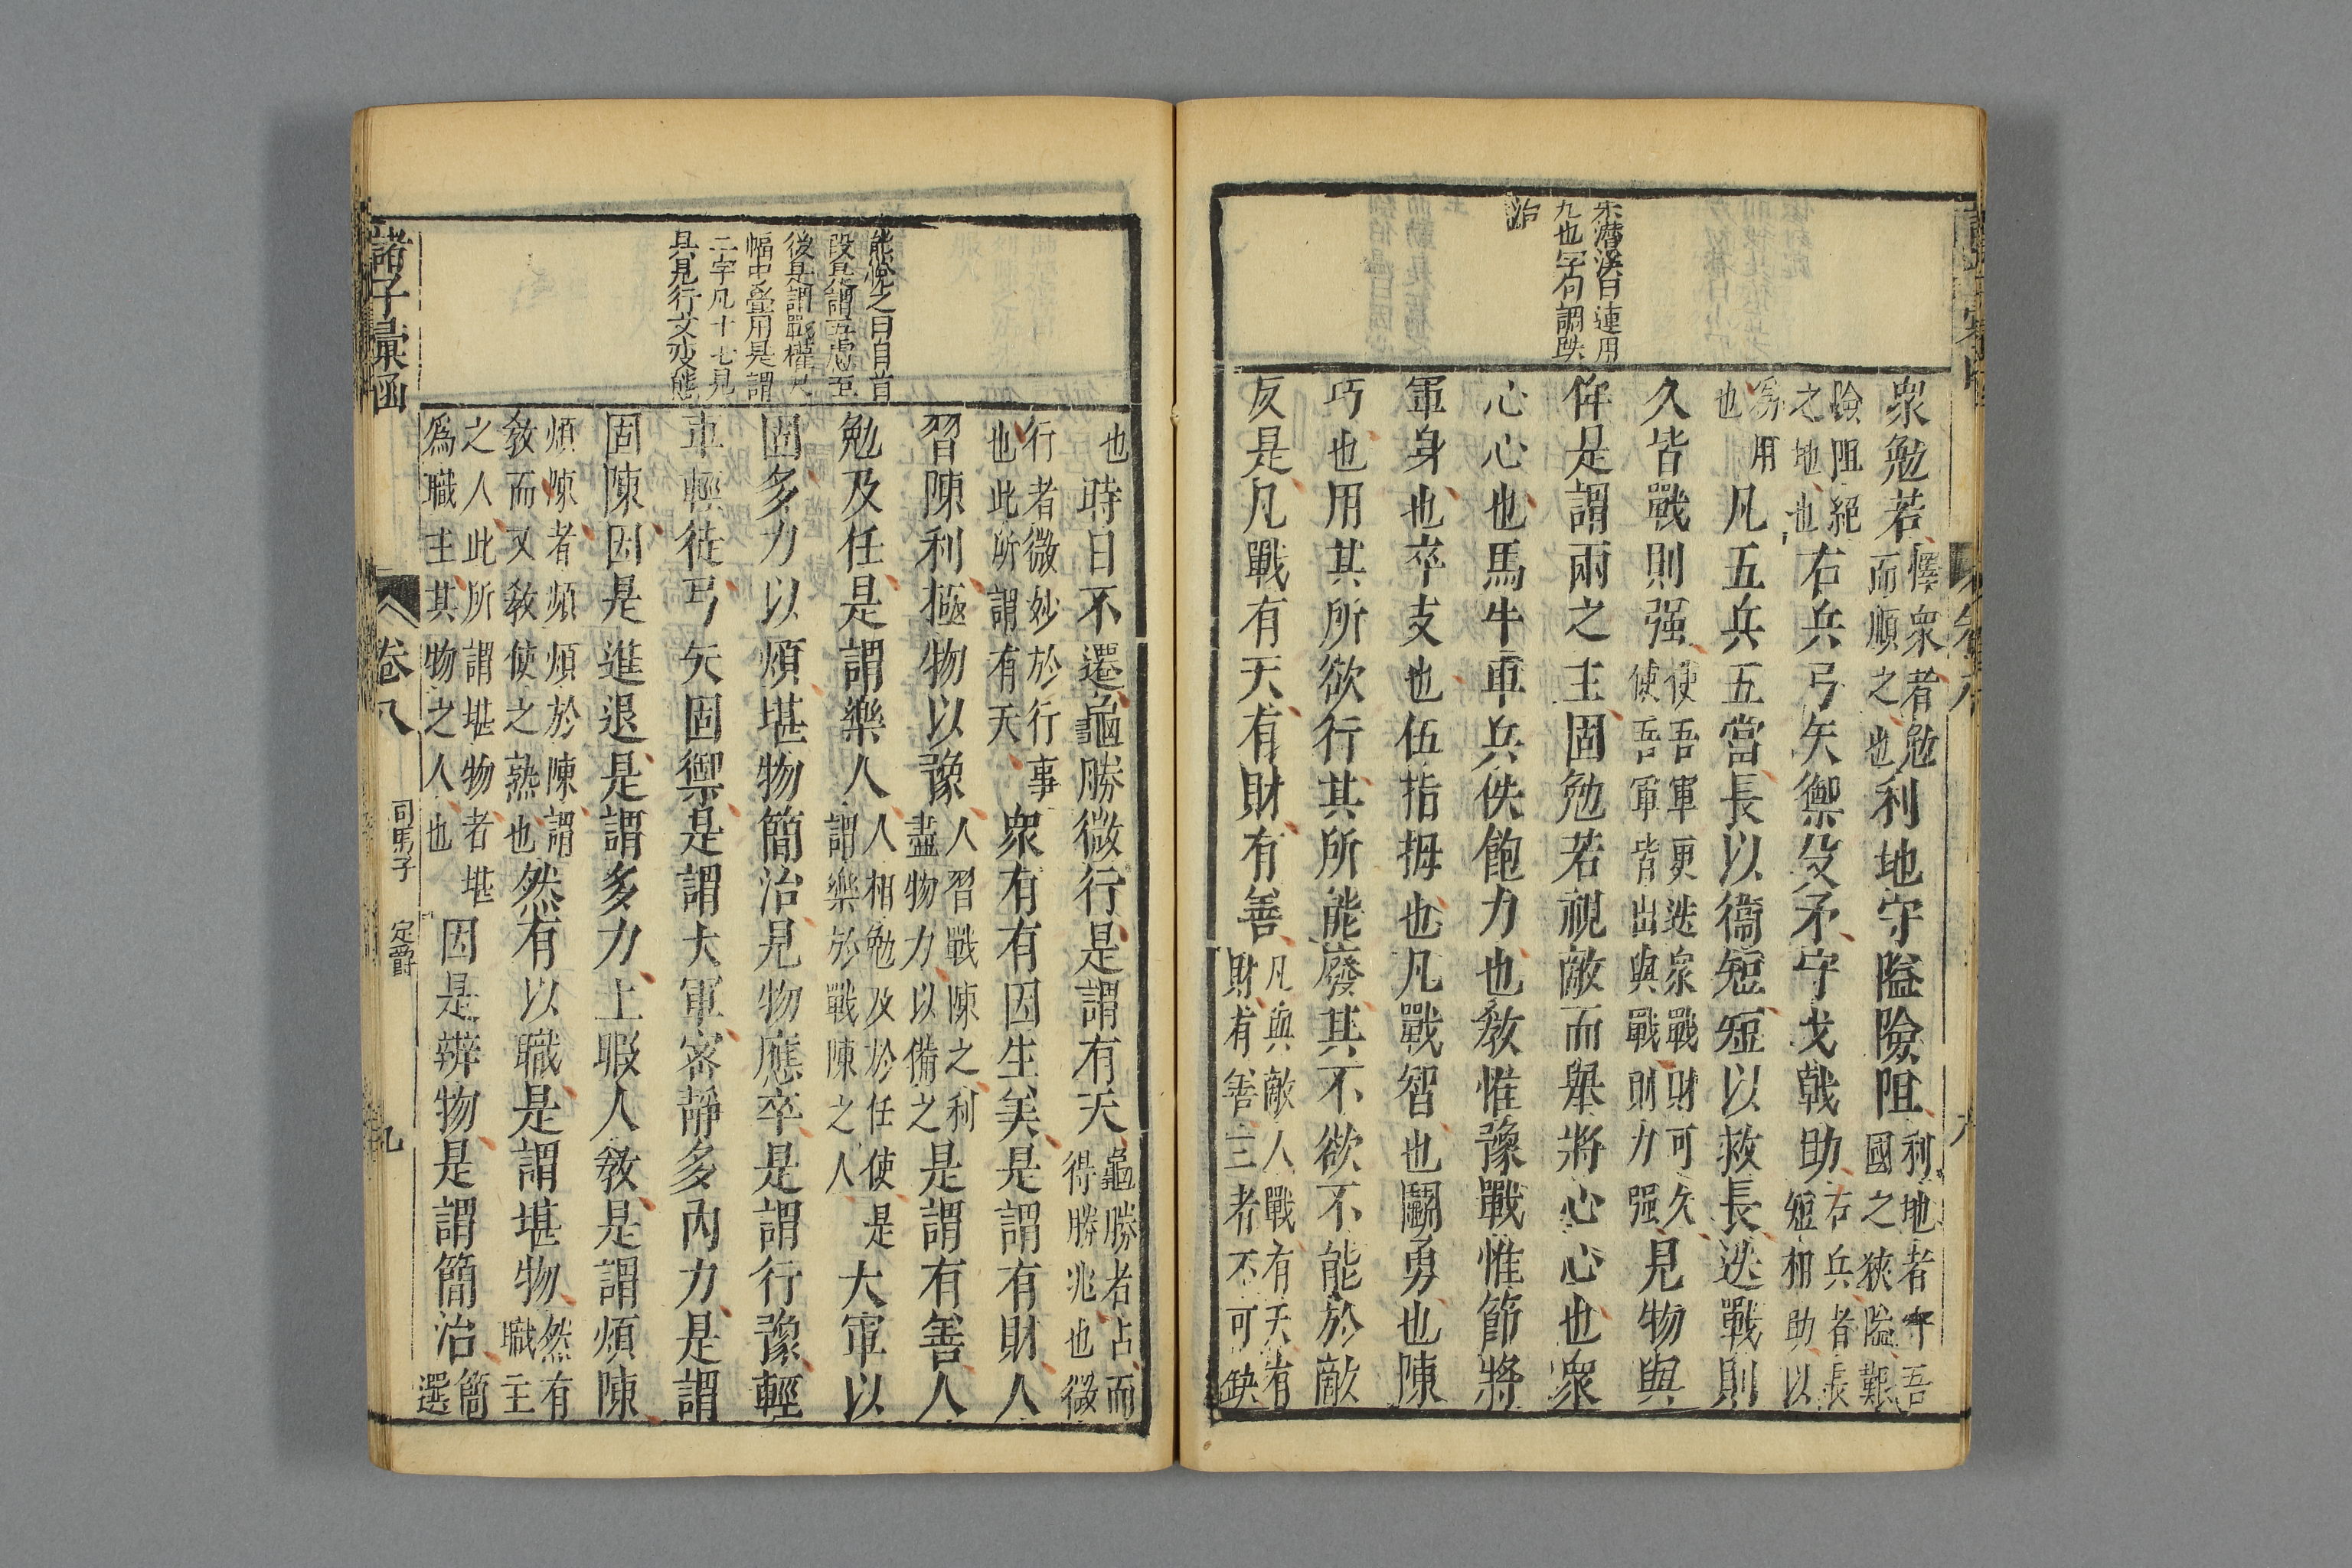 宋潛溪曰連用
九也字句調跌
治
衆勉若懌衆者勉而順之也利地守隘險阻利地者守吾國之狹隘艱
險阻絕之地也右兵弓矢禦殳矛守戈戟助右兵者長短相助以
爲用也凡五兵五當長以衞短短以救長迭戰則
久皆戰則强使吾軍更迭衆戰財可久使吾軍皆出與戰則力强見物與
侔是謂兩之主固勉若視敵而舉將心心也衆
心心也馬牛車兵佚飽力也敎惟豫戰惟節將
軍身也卒支也伍指拇也凡戰智也鬭勇也陳
巧也用其所欲行其所能廢其不欲不能於敵
反是凡戰有天有財有善凡與敵人戰有天有財有善三者不可缺
熊悅之曰自首
段是謂五慮至
後是謂戰權凡
幅中疊用是謂
二字凡十七見
具見行文变態
也時日不遷龜勝微行是謂有天龜勝者占而得勝兆也微
行者微妙於行事也此所謂有天衆有有因生美是謂有財人
習陳利極物以豫人習戰陳之利盡物力以備之是謂有善人
勉及任是謂樂人人相勉及於任使是謂樂於戰陳之人大軍以
固多力以煩堪物簡治見物應卒是謂行豫輕
車輕徒弓矢固禦是謂大軍密靜多內力是謂
固陳因是進退是謂多力上暇人敎是謂煩陳
煩陳者頻煩於陳謂敎而又敎使之熟也然有以職是謂堪物然有職主
之人此所謂堪物者堪爲職主其物之人也因是辨物是謂簡治簡選
諸子彙函
卷八
司馬子
定爵
九